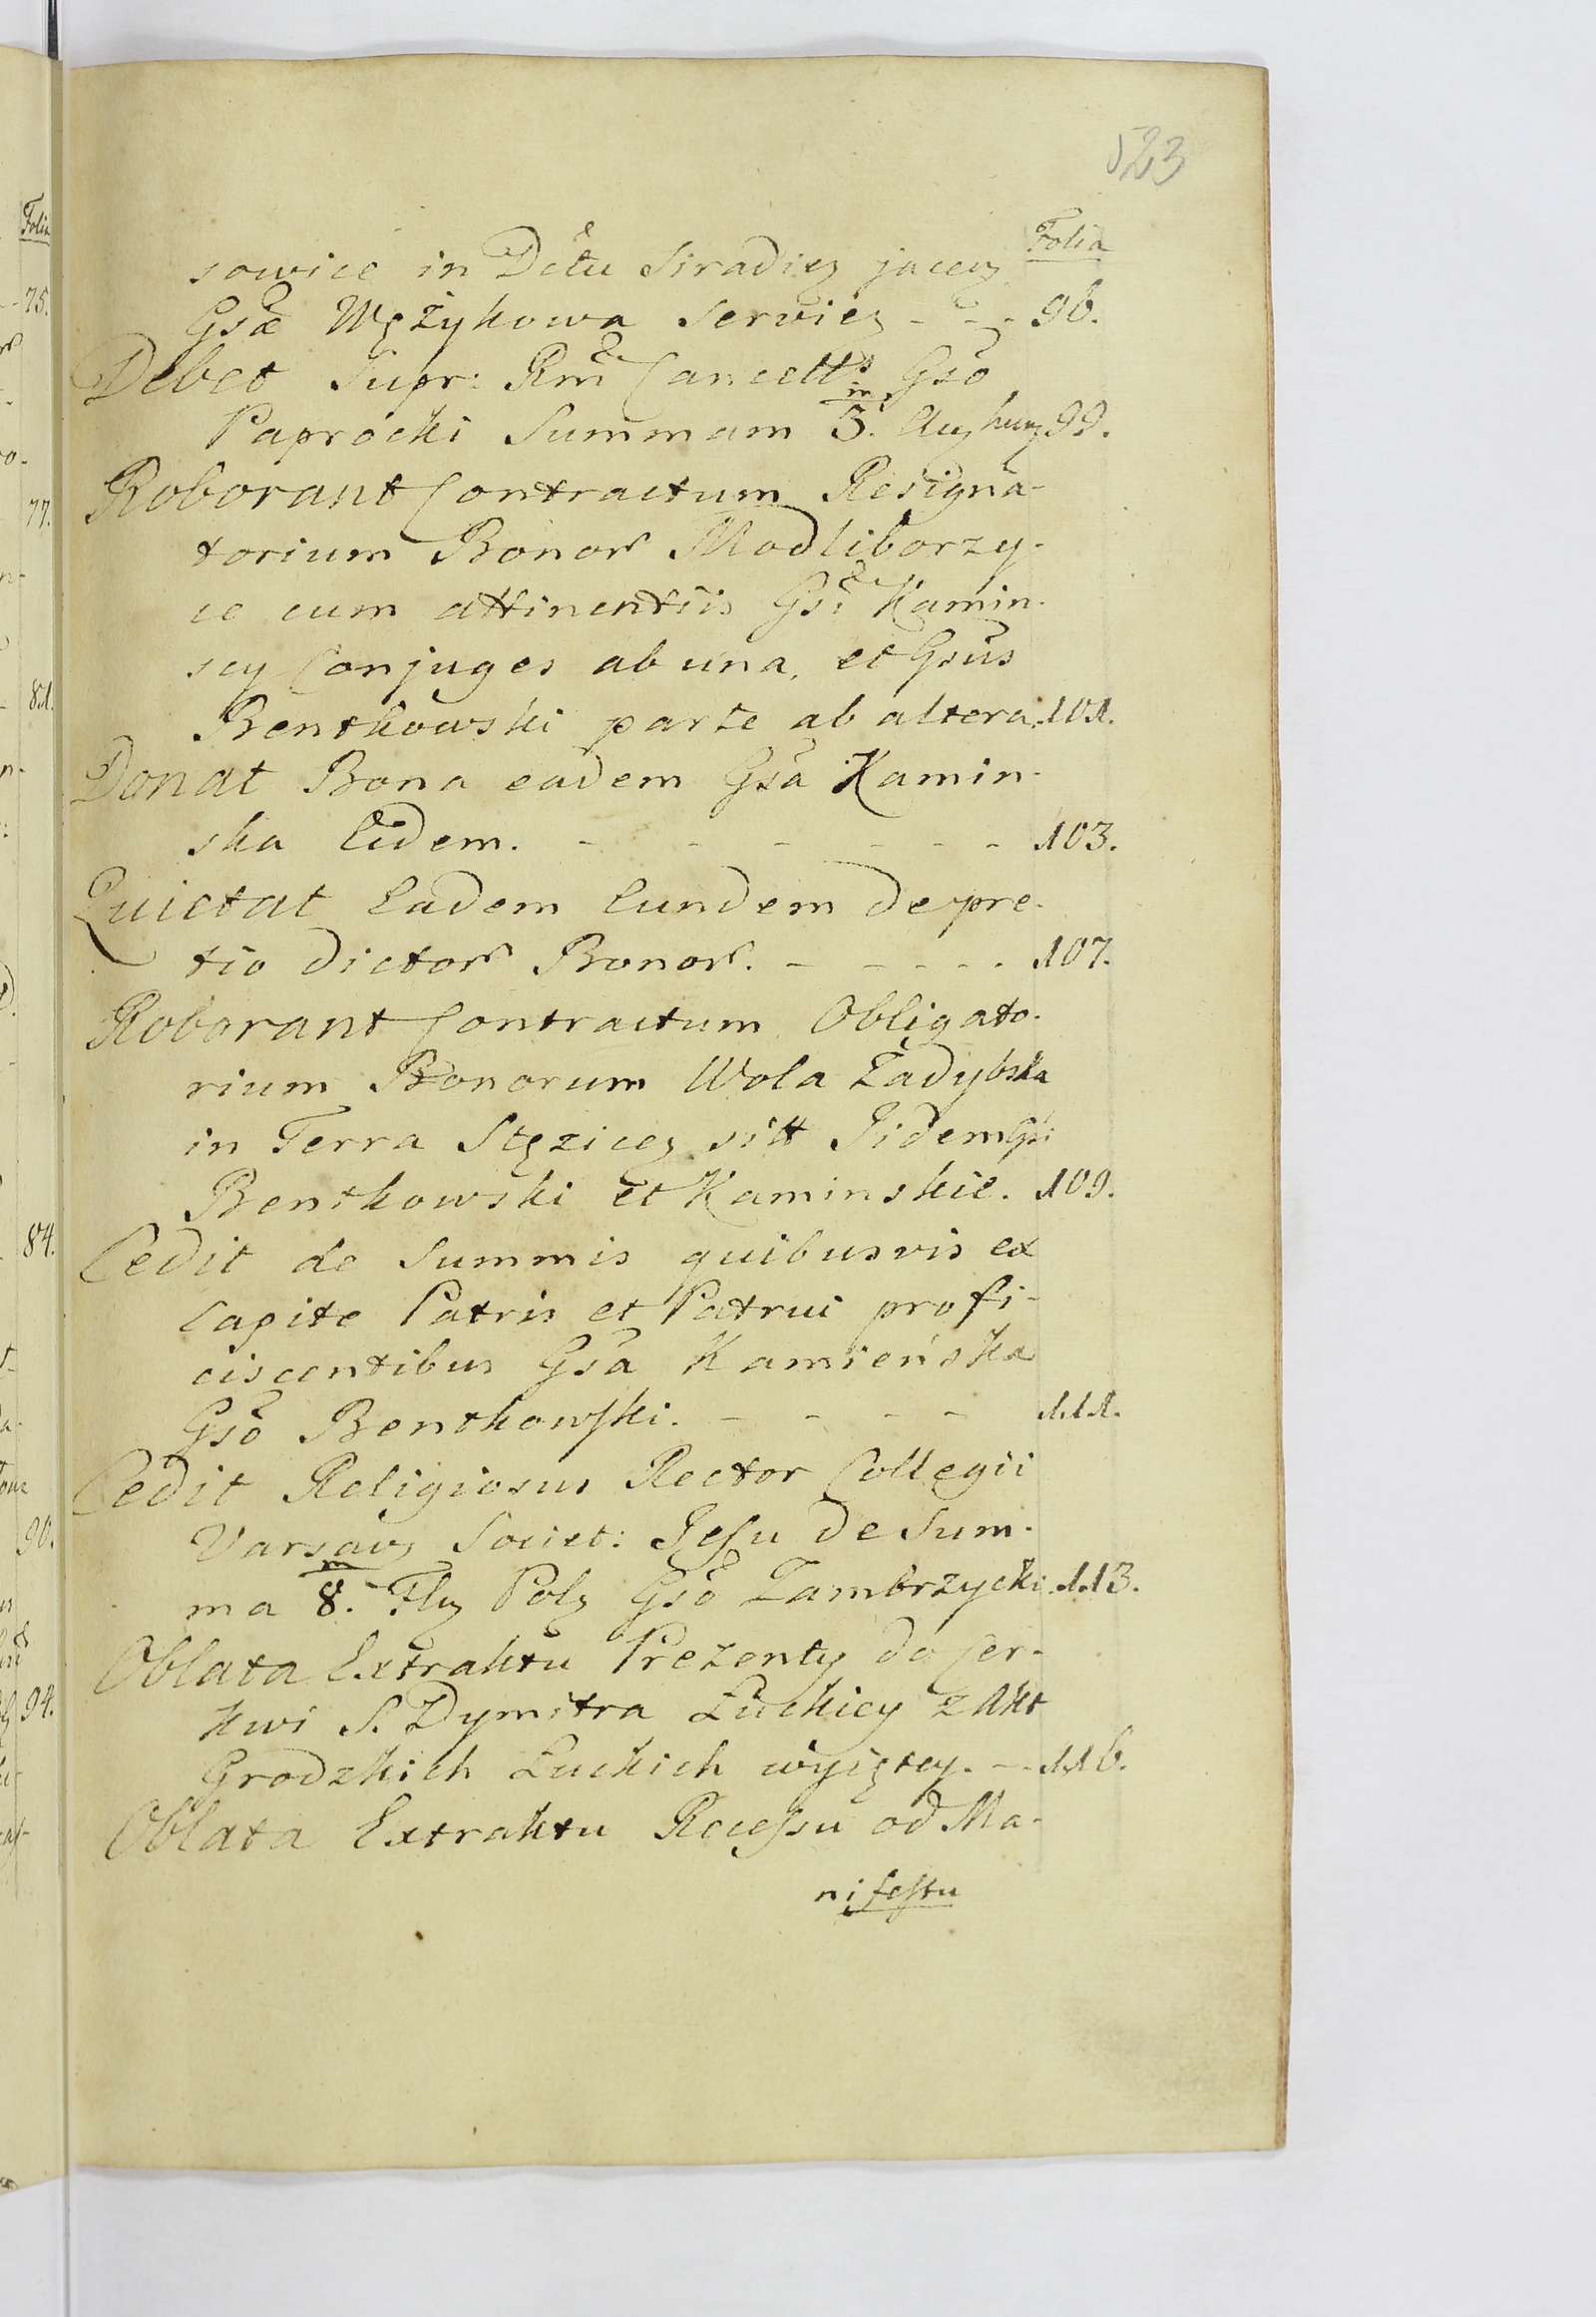 523
Folia
sowice in Dctu Siradiez jacez
Gsæ Wężykowa serviez - - - 96.
Debet Supr: Rmi Cancell's Gso
Paprocki Summam 3.m Auz hunz 99.
Roborant Contractum Resigna-
torium Bonor Modliborzy-
ce cum attinentiis Gsi Kamin-
scy Conjuges ab una, et Gsus
Benthowski parte ab altera. 101.
Donat Bona eadem Gsa Kamin-
ska Eidem. - - - - - - 103.
Quietat Eadem Eundem de pre-
tio dictor Bonor. - - - - - 107.
Roborant Contractum Obligato-
rium Bonorum Wola Ładybska
in Terra Stęzicez sitt Iidem Gsi
Benthowski et Kaminskie. 109.
Cedit de Summis quibusvis ex
Capite Patris et Patrui profi-
ciscentibus Gsa Kamieńska
Gso Benthowski. - - - - 111.
Cedit Religiosus Rector Collegii
Varsavz Societ: Jesu de Sum-
ma 8.m Flz Polz Gso Zambrzycki. 113.
Oblata Extraktu Prezenty do Cer-
kwi S. Dymitra Łuckiey z Akt
Grodzkich Łuckich wyiętey. - - 116.
Oblata Extraktu Recessu od Ma-
nifestu
Folia
75.
77.
81.
84.
90.
94.